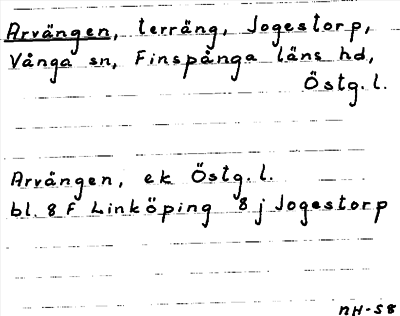 Arvängen, terräng, Jogestorp,
Vånga sn, Finspånga läns hd,
Östg. l.
Arvängen, ek Östg. l.
bl. 8 F Linköping 8 j Jogestorp
NH-58